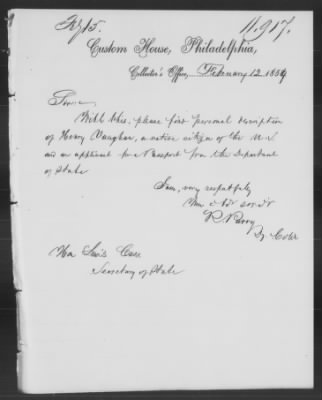 11.917.
Custom House, Philadelphia,
Collector's Office, February 12 1859
Sir
With this, please find personal description
of Henry Vaughan, a native citizen of the U.S.
and an applicant for a Passport from the Department
of State
I am, very respectfully
Dy Coll
Hon Lewis Cass
Secretary of State